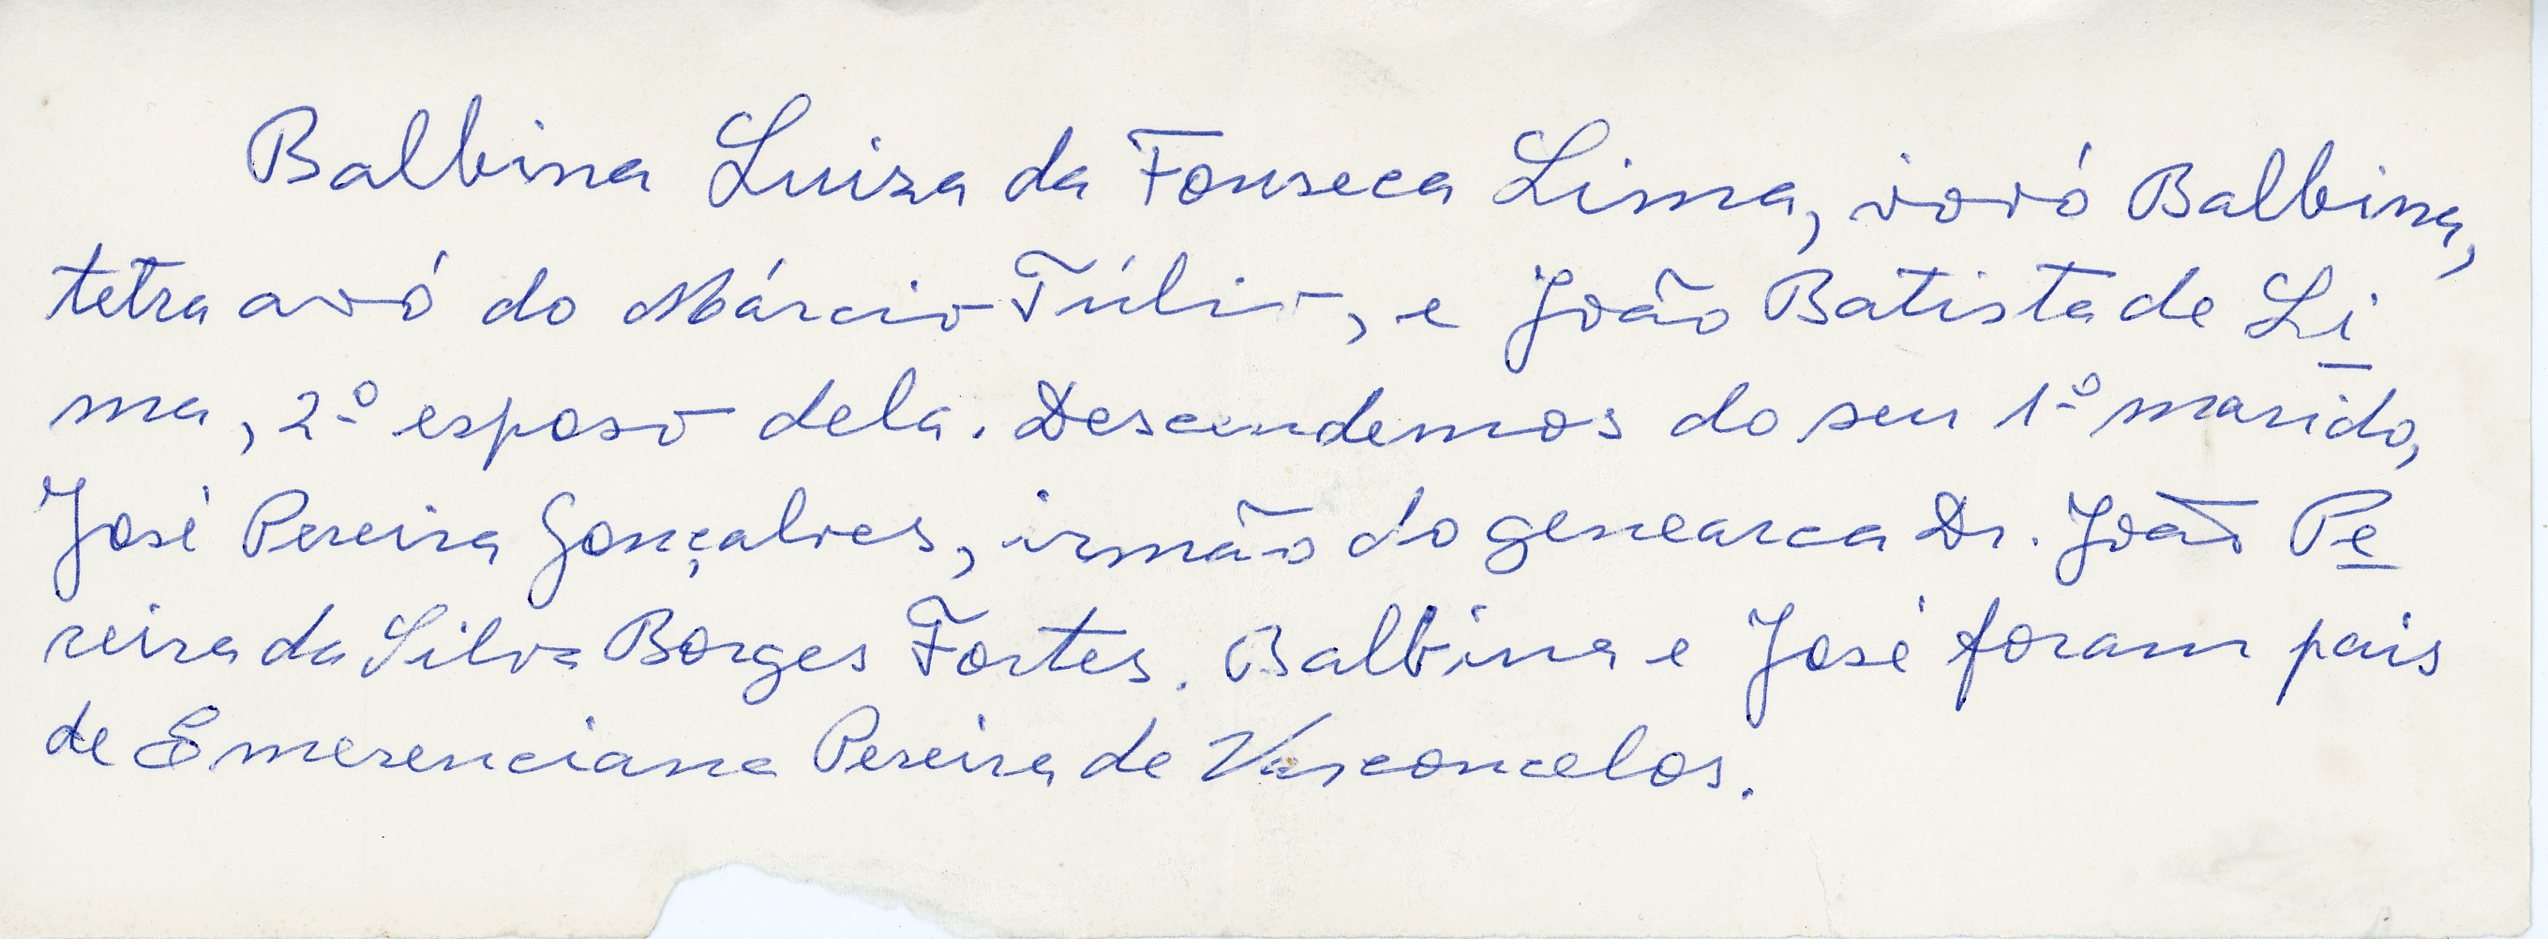 Balbina Luiza da Fonseca Lima, vovó Balbina,
tetra avó do Márcio Túlio, e João Batista de Li
ma, 2º esposo dela. Descendemos do seu 1º marido,
José Pereira Gonçalves, irmão do genearca Dr. João Pe
reira da Silva Borges Fortes. Balbina e José foram pais
de Emerenciana Pereira de Vasconcelos.